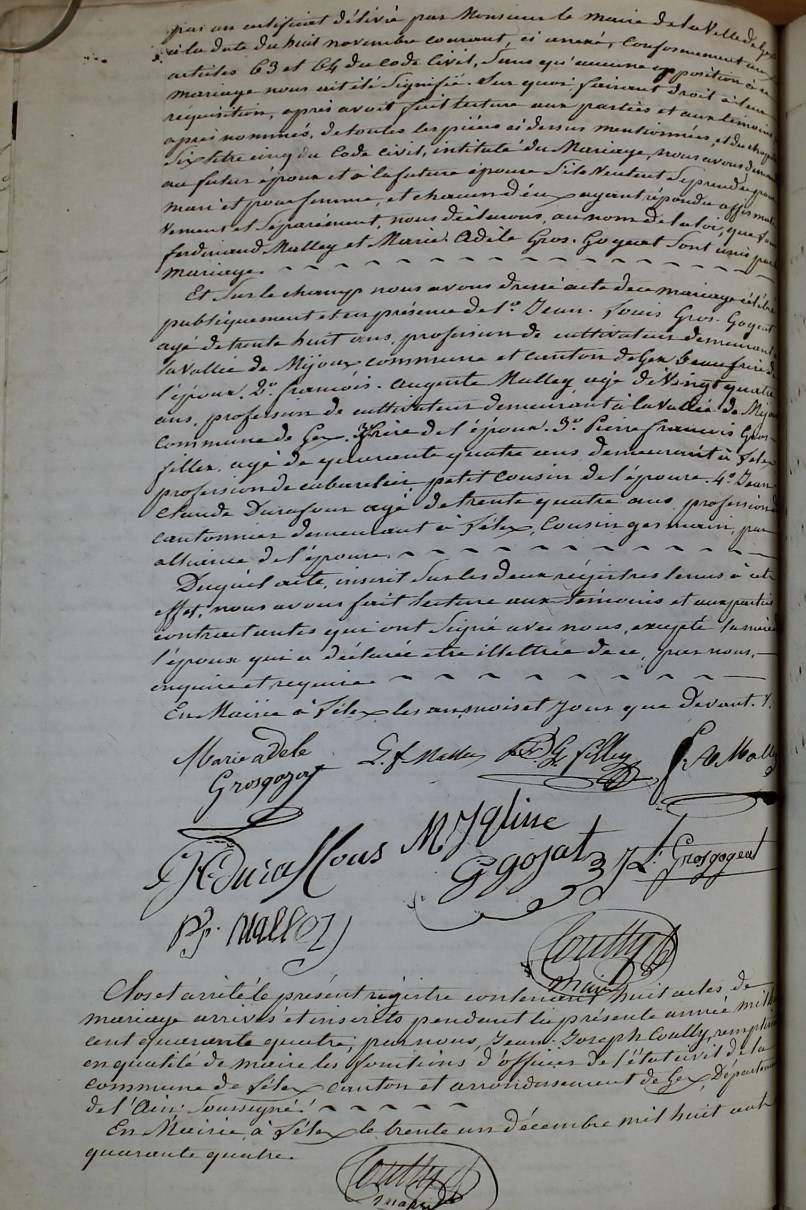 par un certificat délivré par Monsieur le maire de la Ville de Gex
à la date du huit novembre courant, ci annexé, Conformément aux
articles 63 et 64 du Code Civil, Sans qu'aucune opposition à ce
mariage nous ait été Signifié. Sur quoi faisant droit à leur
réquisition, après avoir fait lecture aux parties et aux témoins
après nommés, de toutes les pièces ci dessus mentionnées, et du chapitre
Six titre cinq du Code civil, intitulé du Mariage, nous avons
au futur époux et à la future épouse S'ils veulent Se prendre pour
mari et pour femme, et chacun d'eux ayant répondu affirmati-
vement et Séparément, nous déclarons, au nom de la loi, que
ferdinand Malley et Marie Adèle Gros-Gogeat Sont unis par
mariage.
Et Sur le champ nous avons dressé acte de ce mariage célébré
publiquement et en présence de 1° Jean-Louis Gros-Gogeat
agé de trente huit ans, profession de cultivateur demeurant à
la vallée de Mijoux commune et canton de Gex beau frère de
l'époux. 2° François-auguste Malley agé de vingt quatre
ans, profession de cultivateur demeurant à la vallée de Mijoux
Commune de Gex. frère de l'époux. 3° Pierre françois Gros-
fillex agé de quarante quatre ans demeurant à Lélex
profession de cabaretier petit cousin de l'épouse. 4° Jean
Claude Durafour agé de trente quatre ans, profession de
cantonnier demeurant à Lélex, Cousin germain, par
alliance de l'épouse.
Duquel acte, inscrit Sur les deux régistres tenus à cet
effet, nous avons fait lecture aux témoins et aux parties
contractantes qui ont Signé avec nous, excepté la mère
l'époux qui a déclaré être illettrée de ce, par nous,
enquise et requise
En Mairie à Lélex les an, mois et Jour que devant.
Marie adele
Grosgogeat
L. f Malley
G fillex
Malley
Duraffous
Ggojat
Grosgogeat
Coutty
maire
Clos et arrêté le présent régistre contenant huit actes de
mariage arrivés et inscrits pendant la présente année mil huit
cent quarante quatre, par nous, Jean-Joseph Coutty, remplissant
en qualité de maire les fonctions d'officier de l'état civil de la
commune de Lélex canton et arrondissement de Gex, Département
de l'Ain, Soussigné.
En Mairie à Lélex le trente un décembre mil huit cent
quarante quatre.
Coutty
maire